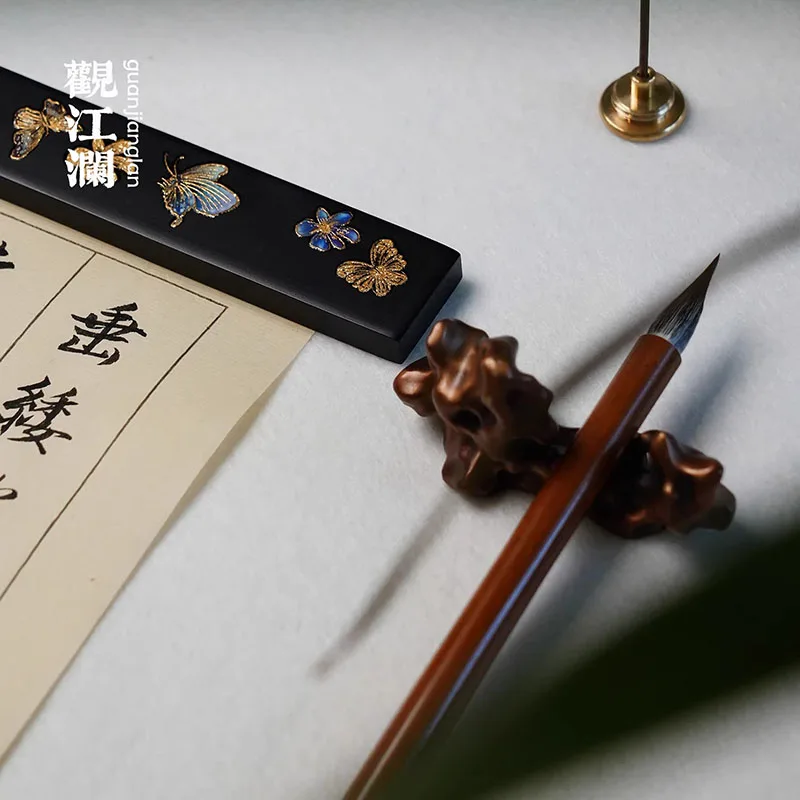 觀江瀾
guanjianglan
垂緌